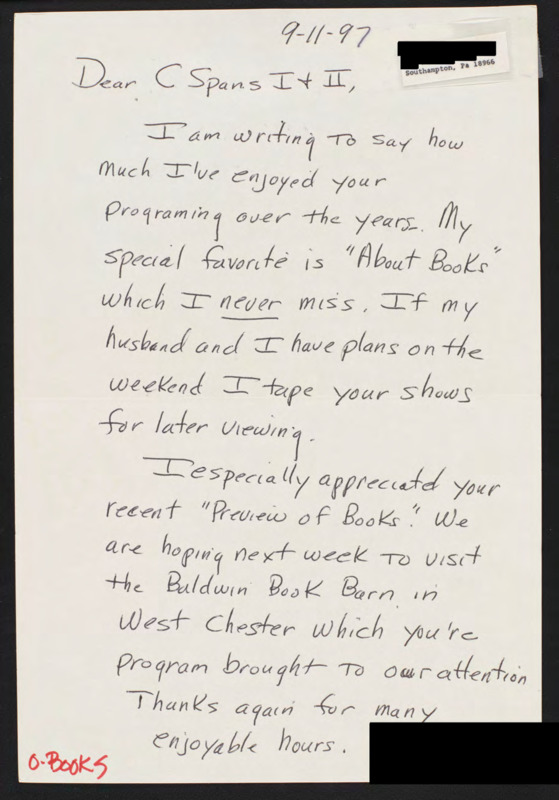 9-11-97
Southampton, Pa 18966
Dear C Spans I & II,
I am writing to say how
much I've enjoyed your
programing over the years. My
special favorite is "About Books"
which I never miss. If my
husband and I have plans on the
weekend I tape your shows
for later viewing.
I especially appreciated your
recent "Preview of Books." We
are hoping next week to visit
the Baldwin Book Barn in
West Chester which you're
program brought to our attention
Thanks again for many
enjoyable hours.
O-BOOKS